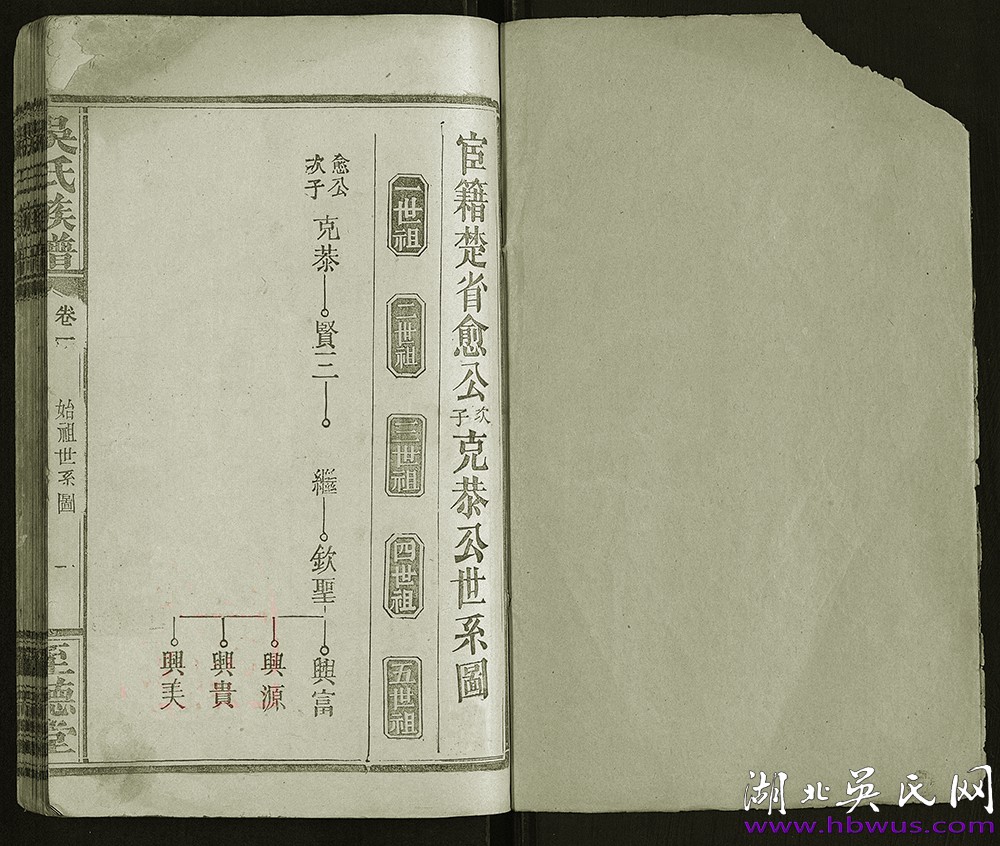 宦籍楚省愈公次子克恭公世系圖
一世祖
二世祖
三世祖
四世祖
五世祖
愈公次子
克恭
賢三
繼
欽聖
興富
興源
興貴
興美
吳氏族譜
卷一
始祖世系圖
一
至德堂
湖北吳氏网
www.hbwus.com